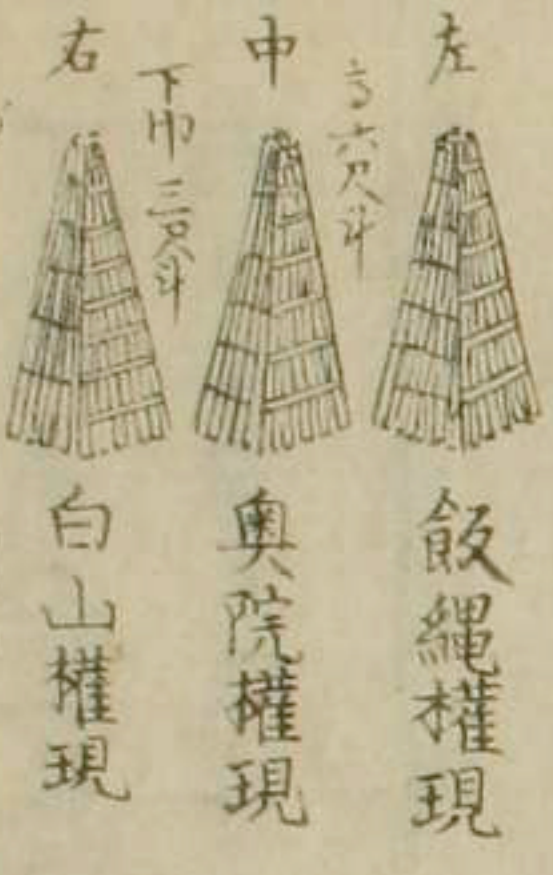 左
飯縄権現
高六尺斗
中
奥院権現
下巾三尺斗
右
白山権現